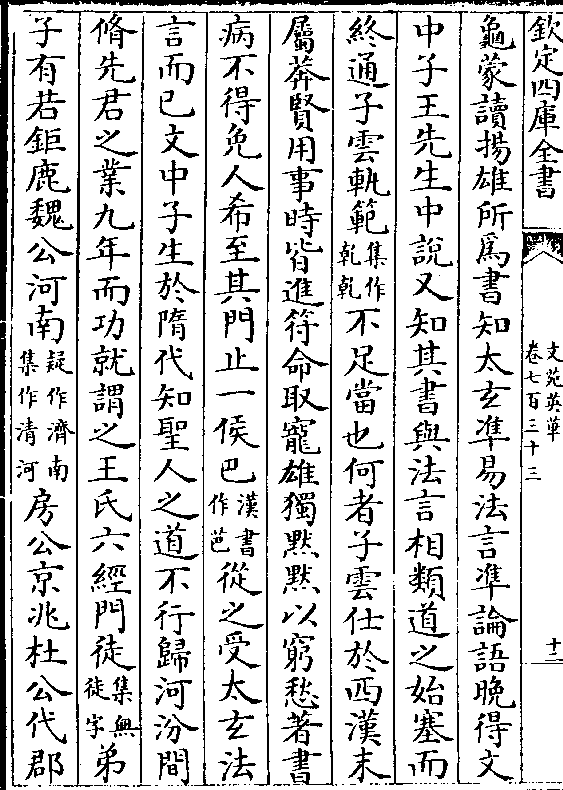 欽定四庫全書
文苑英華
卷七百三十三
十二
龜蒙讀揚雄所為書知太玄準易法言準論語晚得文
中子王先生中說又知其書與法言相類道之始塞而
終通子雲軌範集作乾乾不足當也何者子雲仕於西漢末
屬莽賢用事時皆進符命取寵雄獨默默以窮愁著書
病不得免人希至其門止一侯巴漢書作芭從之受太玄法
言而已文中子生於隋代知聖人之道不行歸河汾間
脩先君之業九年而功就謂之王氏六經門徒集無徒字弟
子有若鉅鹿魏公河南疑作濟南集作清河房公京兆杜公代郡